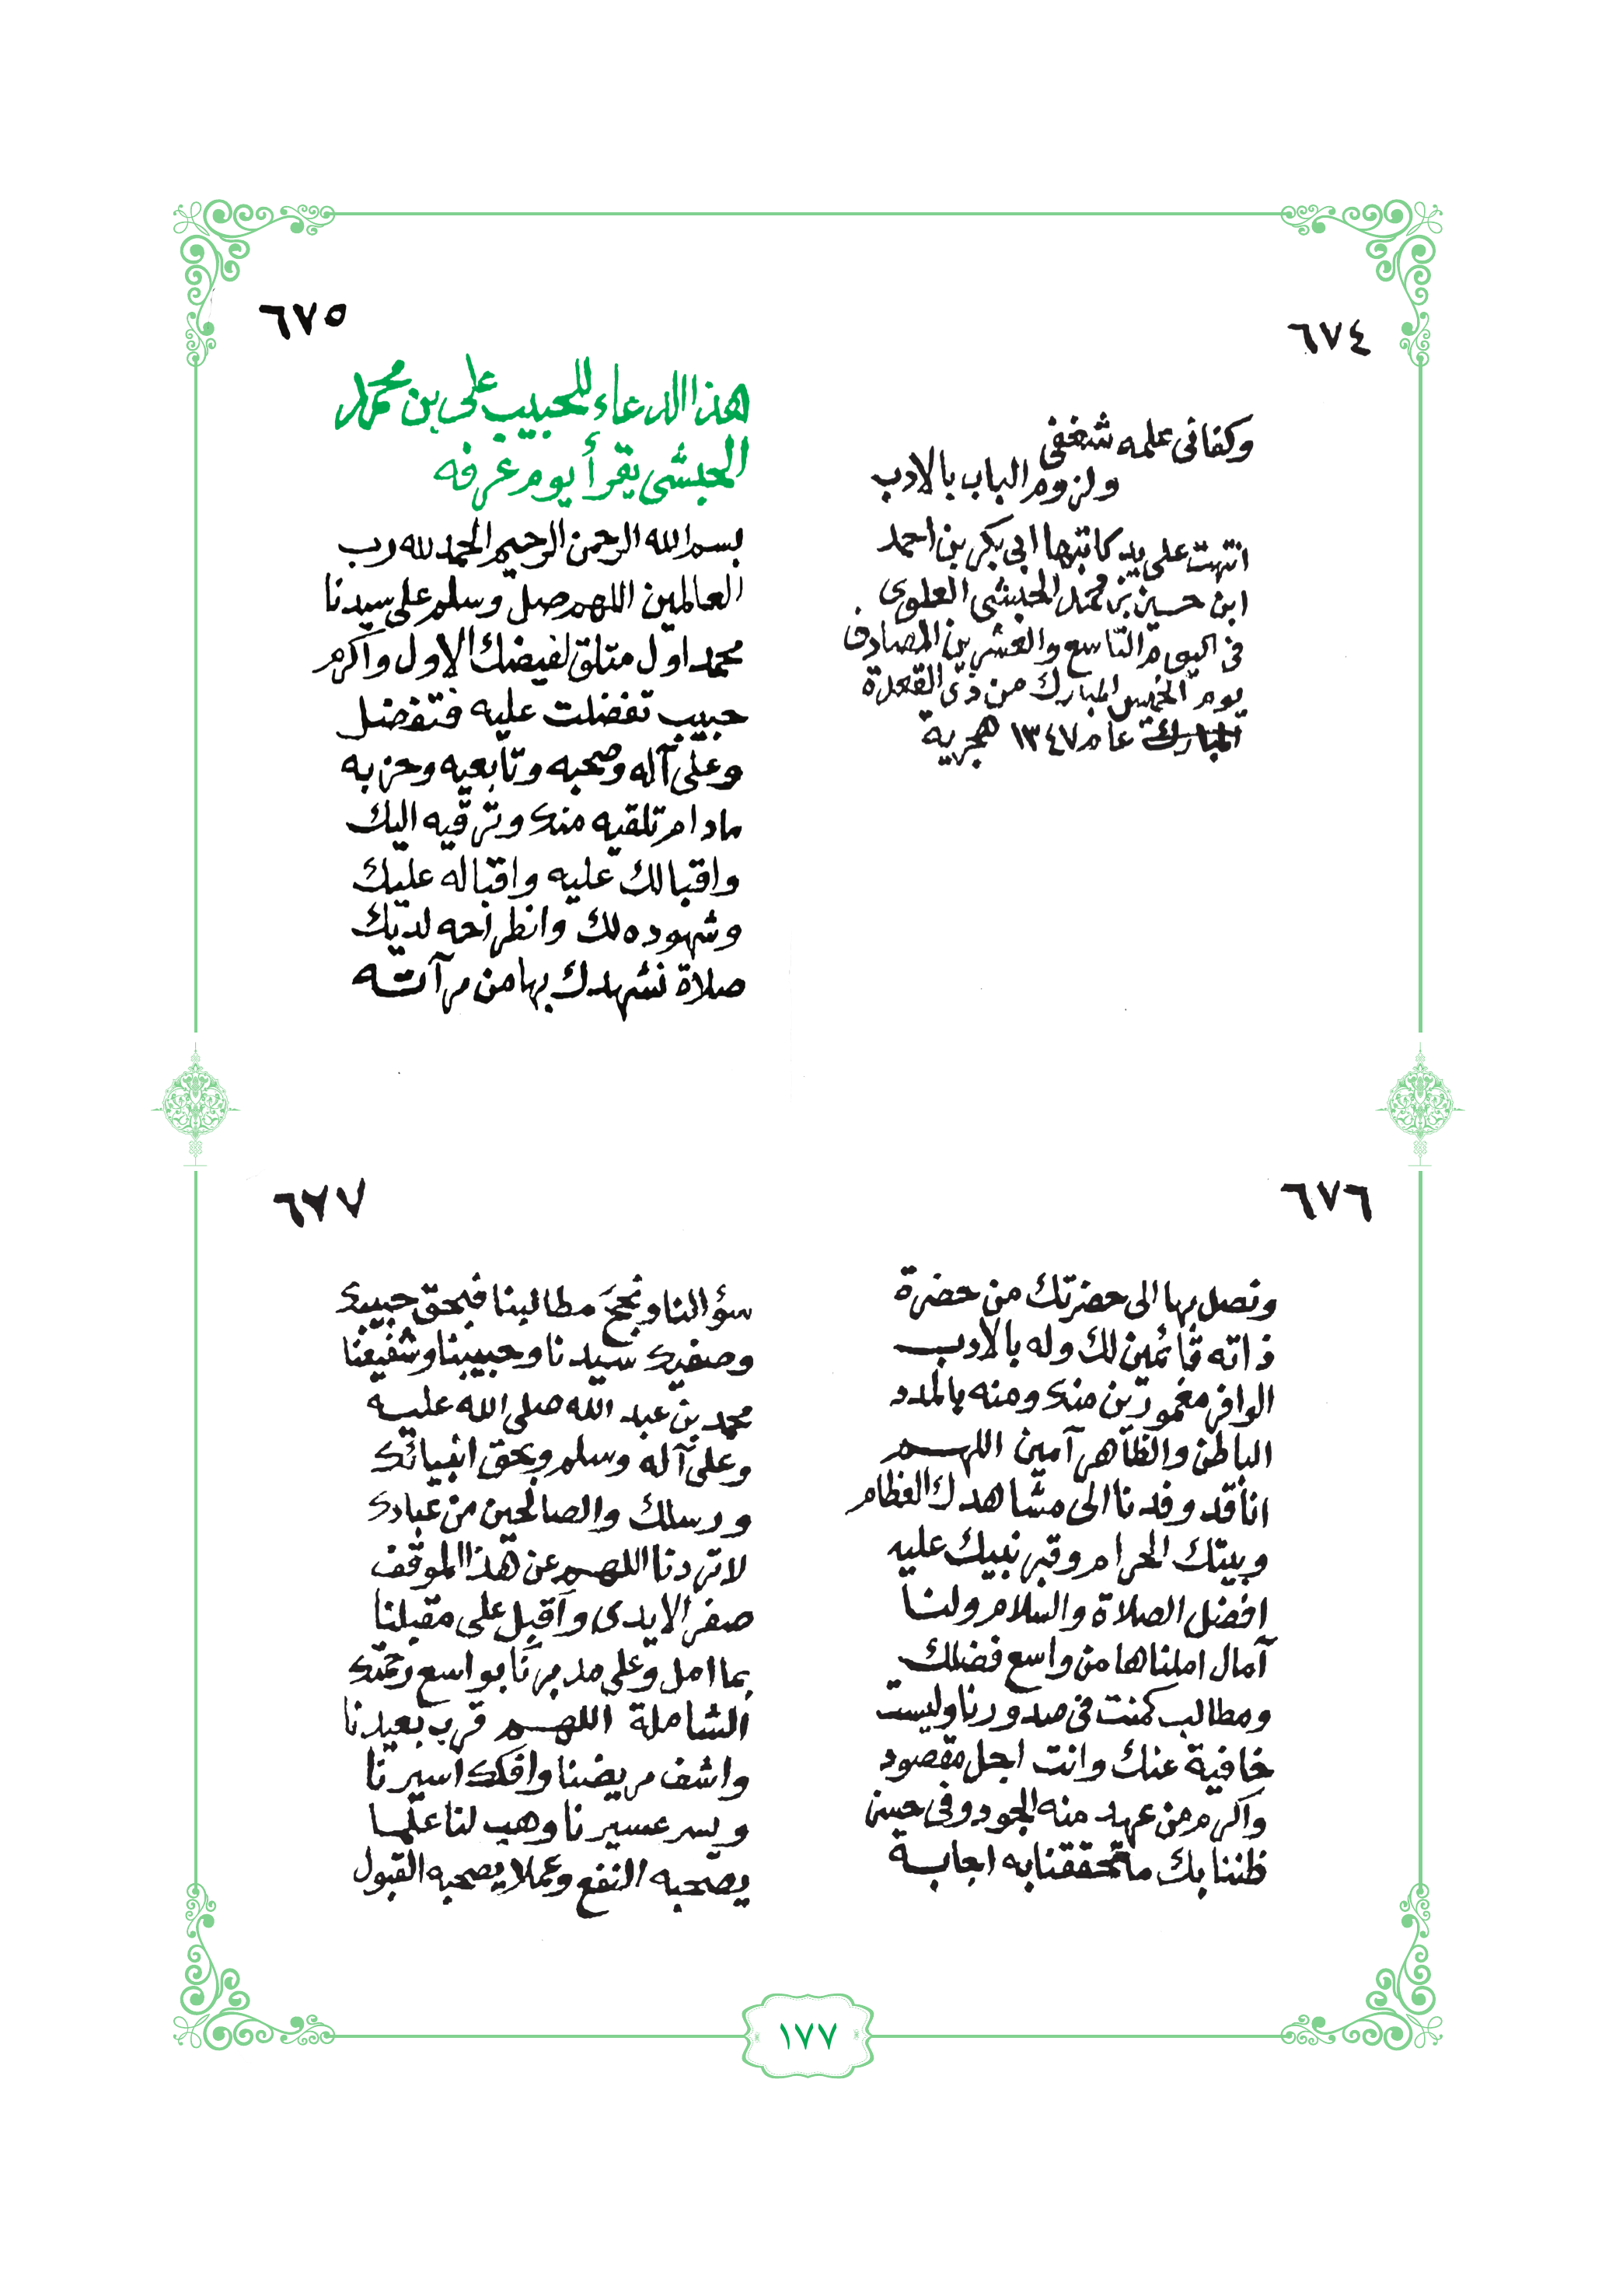 ٦٧٤
وكفانى علمه شغفى
ولزوم الباب بالادب
انتهت على يد كاتبها ابى بكر بن احمد
ابن حسين بن محمد الحبشى العلوى
فى اليوم التاسع والعشرين المصادف
يوم الخميس المبارك من ذى القعدة
المبارك عام ١٣٤٧ هجرية
٦٧٥
هذا الدعاء للحبيب على بن محمد
الحبشى يقرأ يوم عرفه
بسم الله الرحمن الرحيم الحمد لله رب
العالمين اللهم صل وسلم على سيدنا
محمد اول متلق لفيضك الاول واكرم
حبيب تفضلت عليه فتفضل
وعلى آله وصحبه وتابعيه وحزبه
مادام تلقيه منك وترقيه اليك
واقبالك عليه واقباله عليك
وشهوده لك وانطراحه لديك
صلاة نشهدك بها من مرآته
٦٧٦
ونصل بها الى حضرتك من حضرة
ذاته قائمين لك وله بالادب
الوافر مغمورين منك ومنه بالمدد
الباطن والظاهر آمين اللهم
انا قد وفدنا الى مشاهدك العظام
وبيتك الحرام وقبر نبيك عليه
افضل الصلاة والسلام ولنا
آمال املناها من واسع فضلك
ومطالب كمنت فى صدورنا وليست
خافية عنك وانت اجل مقصود
واكرم من عهد منه الجود وفى حسن
ظننا بك ما تحققنا به اجابة
٦٧٧
سؤالنا ونجح مطالبنا فبحق حبيبك
وصفيك سيدنا وحبيبنا وشفيعنا
محمد بن عبد الله صلى الله عليه
وعلى آله وسلم وبحق انبيائك
ورسلك والصالحين من عبادك
لا تردنا اللهم عن هذا الموقف
صفر الايدى واقبل على مقبلنا
بما امل وعلى مدبرنا بواسع رحمتك
الشاملة اللهم قرب بعيدنا
واشف مريضنا وافكك اسيرنا
ويسر عسيرنا وهب لنا علما
يصحبه النفع وعملا يصحبه القبول
١٧٧